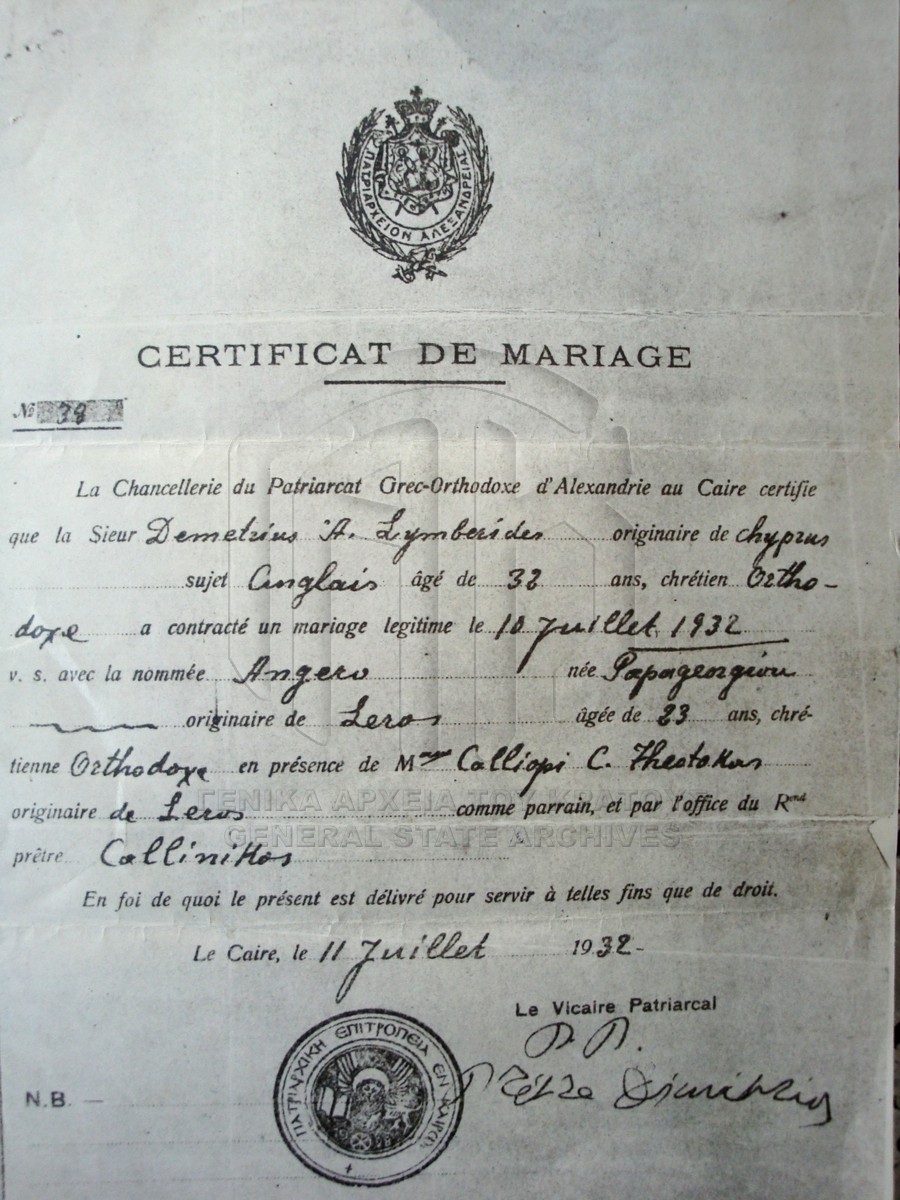 ΠΑΤΡΙΑΡΧΕΙΟΝ ΑΛΕΞΑΝΔΡΕΙΑΣ
CERTIFICAT DE MARIAGE
№ 38
La Chancellerie du Patriarcat Grec-Orthodoxe d'Alexandrie au Caire certifie
que la Sieur Demetrius A. Lymberides originaire de Chyprus
sujet Anglais âgé de 32 ans, chrétien Ortho-
doxe a contracté un mariage legitime le 10 Juillet 1932
v. s. avec la nommée Angero née Papageorgiou
originaire de Leros âgée de 23 ans, chré-
tienne Orthodoxe en présence de Mme Calliopi C. Theotokas
originaire de Leros comme parrain, et par l'office du Rend
ΓΕΝΙΚΑ ΑΡΧΕΙΑ ΤΟΥ ΚΡΑΤΟΥΣ
GENERAL STATE ARCHIVES
prêtre Callinikos
En foi de quoi le présent est délivré pour servir à telles fins que de droit.
Le Caire, le 11 Juillet 1932-
Le Vicaire Patriarcal
ΠΑΤΡΙΑΡΧΙΚΗ ΕΠΙΤΡΟΠΕΙΑ ΕΝ ΚΑΙΡΩ
N.B. —